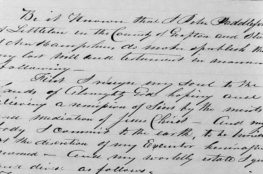 Be it Known that I John Huddleston
of Littleton in the County of Grafton and State
of New Hampshire do make & publish this
my last will and testament in manner
following
First I resign my soul to the
hands of Almighty God hoping and
believing a remission of Sins by the merits
and mediation of Jesus Christ - And my
body I commit to the earth, to be buried
at the discretion of my Executor hereinafter
named - And my worldly estate I give
and divise as follows